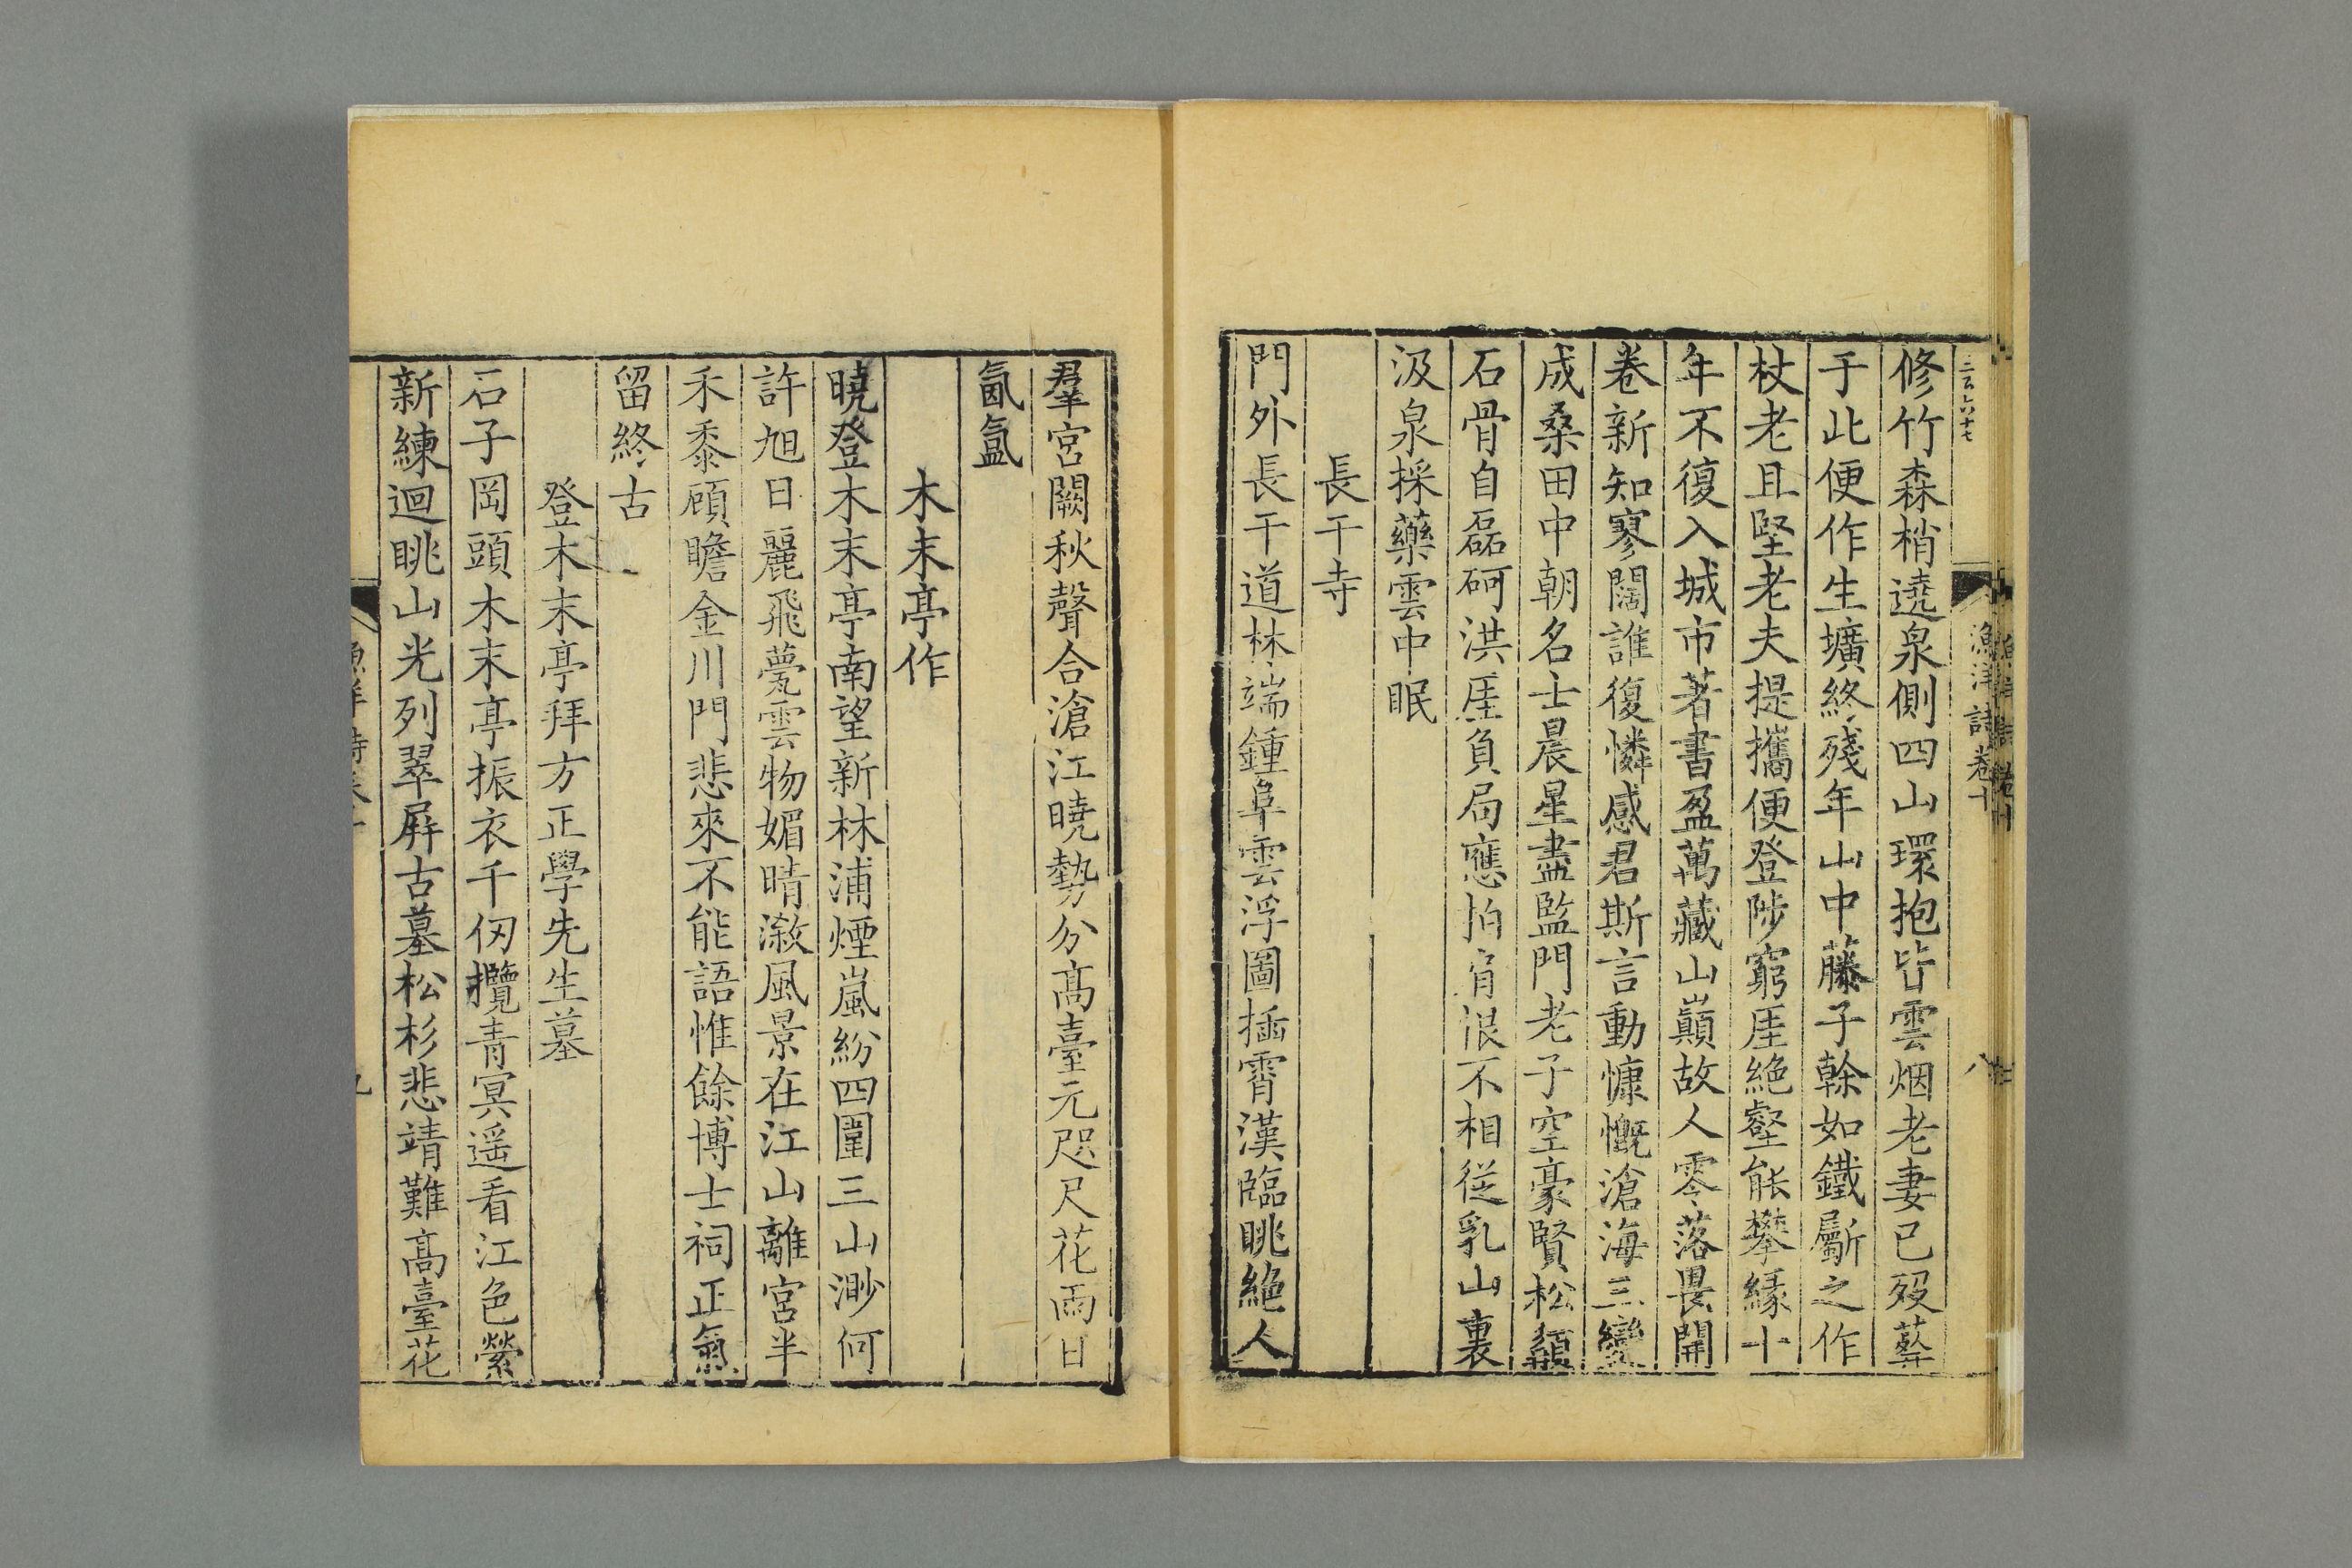 三百六十七
漁洋詩卷十
八
修竹森梢遶泉側四山環抱皆雲烟老妻已歿葬
于此便作生壙終殘年山中藤子榦如鐵斸之作
杖老且堅老夫提攜便登陟窮厓絶壑能攀緣十
年不復入城市著書盈萬藏山巔故人零落畏開
卷新知寥闊誰復憐感君斯言動慷慨滄海三變
成桑田中朝名士晨星盡監門老子空豪賢松顛
石骨自磊砢洪厓負局應拍肩恨不相從乳山裏
汲泉採藥雲中眠
長干寺
門外長干道林端鍾阜雲浮圖插霄漢臨眺絶人
羣宮闕秋聲合滄江曉勢分高臺元咫尺花雨日
氤氳
木末亭作
曉登木末亭南望新林浦煙嵐紛四圍三山渺何
許旭日麗飛甍雲物媚晴漵風景在江山離宮半
禾黍頋瞻金川門悲來不能語惟餘博士祠正氣
留終古
登木末亭拜方正學先生墓
石子岡頭木末亭振衣千仞攬青冥遥看江色縈
新練迴眺山光列翠屏古墓松杉悲靖難高臺花